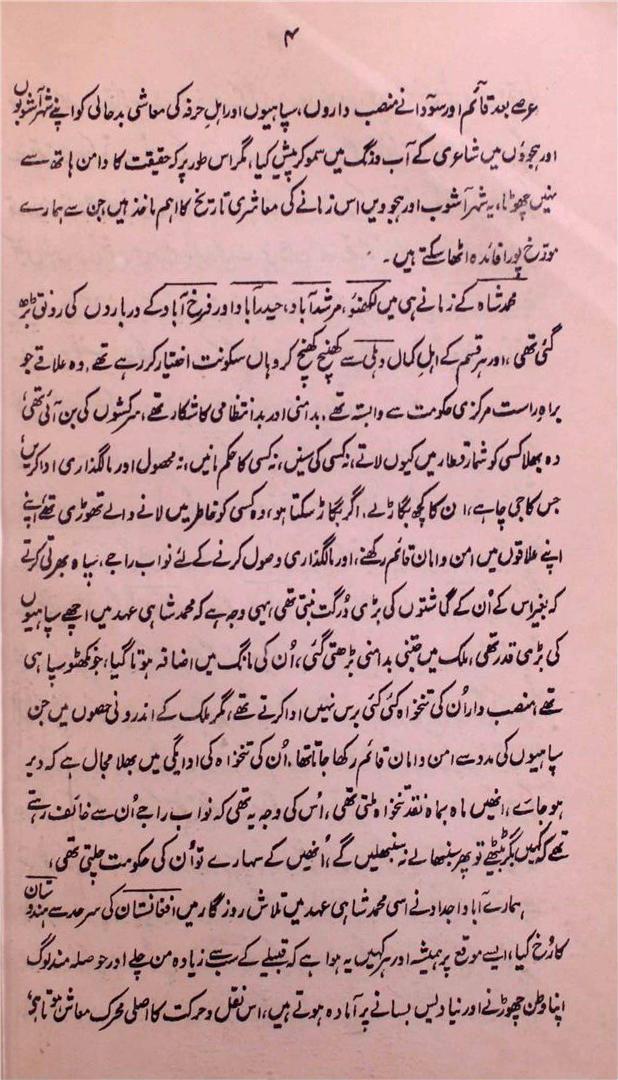 ۴
عرصے بعد قائم اور سودا نے منصب داروں، سپاہیوں اور اہلِ حرفہ کی معاشی بدحالی کو اپنے شہر آشوبوں
اور ہجوؤں میں شاعری کے آب و رنگ میں سمو کر پیش کیا، مگر اس طور پر کہ حقیقت کا دامن ہاتھ سے
نہیں چھوٹا، یہ شہر آشوب اور ہجویں اس زمانے کی معاشری تاریخ کا اہم ماخذ ہیں جن سے ہمارے
مورّخ پورا فائدہ اٹھا سکتے ہیں۔
محمد شاہ کے زمانے ہی میں لکھنؤ، مرشد آباد، حیدرآباد اور فرخ آباد کے درباروں کی رونق بڑھ
گئی تھی، اور ہر قسم کے اہلِ کمال دہلی سے کھنچ کھنچ کر وہاں سکونت اختیار کر رہے تھے۔ وہ علاقے جو
براہِ راست مرکزی حکومت سے وابستہ تھے۔ بدامنی اور بدانتظامی کا شکار تھے، سرکشوں کی بن آئی تھی،
وہ بھلا کسی کو شمار قطار میں کیوں لاتے، نہ کسی کی سنیں، نہ کسی کا حکم مانیں، نہ محصول اور مالگذاری ادا کریں،
جس کا جی چاہے، ان کا کچھ بگاڑ لے۔ اگر بگاڑ سکتا ہو، وہ کسی کو خاطر میں لانے والے تھوڑی تھے، اپنے
اپنے علاقوں میں امن و امان قائم رکھنے، اور مالگذاری وصول کرنے کے لئے نواب راجے، سپاہ بھرتی کرتے
کہ بغیر اس کے اُن کے گماشتوں کی بڑی دُرگت بنتی تھی، یہی وجہ ہے کہ محمد شاہی عہد میں اچھے سپاہیوں
کی بڑی قدر تھی، ملک میں جتنی بدامنی بڑھتی گئی، اُن کی مانگ میں اضافہ ہوتا گیا، جو نکھٹو سپاہی
تھے، منصب دار اُن کی تنخواہ کئی کئی برس نہیں ادا کرتے تھے، مگر ملک کے اندرونی حصوں میں جن
سپاہیوں کی مدد سے امن و امان قائم رکھا جاتا تھا۔ اُن کی تنخواہ کی ادائیگی میں بھلا مجال ہے کہ دیر
ہو جائے، انھیں ماہ بماہ نقد تنخواہ ملتی تھی، اُس کی وجہ یہ تھی کہ نواب راجے اُن سے خائف رہتے
تھے کہ کہیں بگڑ بیٹھے تو پھر سنبھالے نہ سنبھلیں گے، اُنھیں کے سہارے تو اُن کی حکومت چلتی تھی،
ہمارے آبا و اجداد نے اسی محمد شاہی عہد میں تلاش روزگار میں افغانستان کی سرحد سے ہندوستان
کا رُخ کیا، ایسے موقع پر ہمیشہ اور ہر کہیں یہ ہوا ہے کہ قبیلے کے سب سے زیادہ من چلے اور حوصلہ مند لوگ
اپنا وطن چھوڑنے اور نیا دیس بسانے پر آمادہ ہوتے ہیں، اس نقل و حرکت کا اصلی محرک معاش ہوتا ہے،